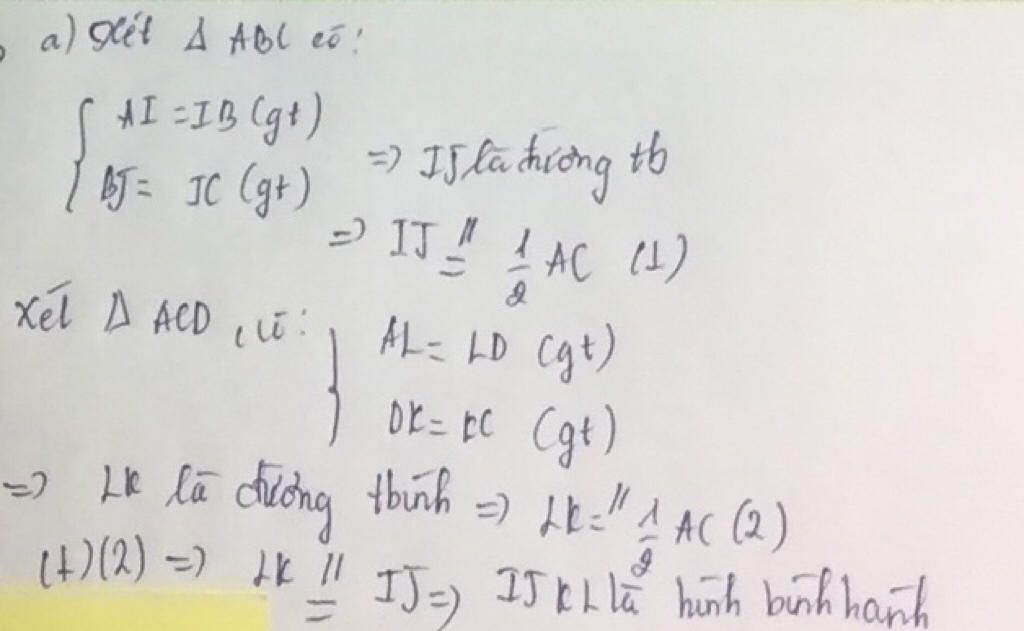 a) Xét Δ ABC có:
{ AI = IB (gt)
BJ = JC (gt) => IJ là đường tb
=> IJ //= 1/2 AC (1)
Xét Δ ACD, có: } AL = LD (gt)
DK = KC (gt)
=> LK là đường tbình => LK =// 1/2 AC (2)
(1)(2) => LK //= IJ => IJKL là hình bình hành